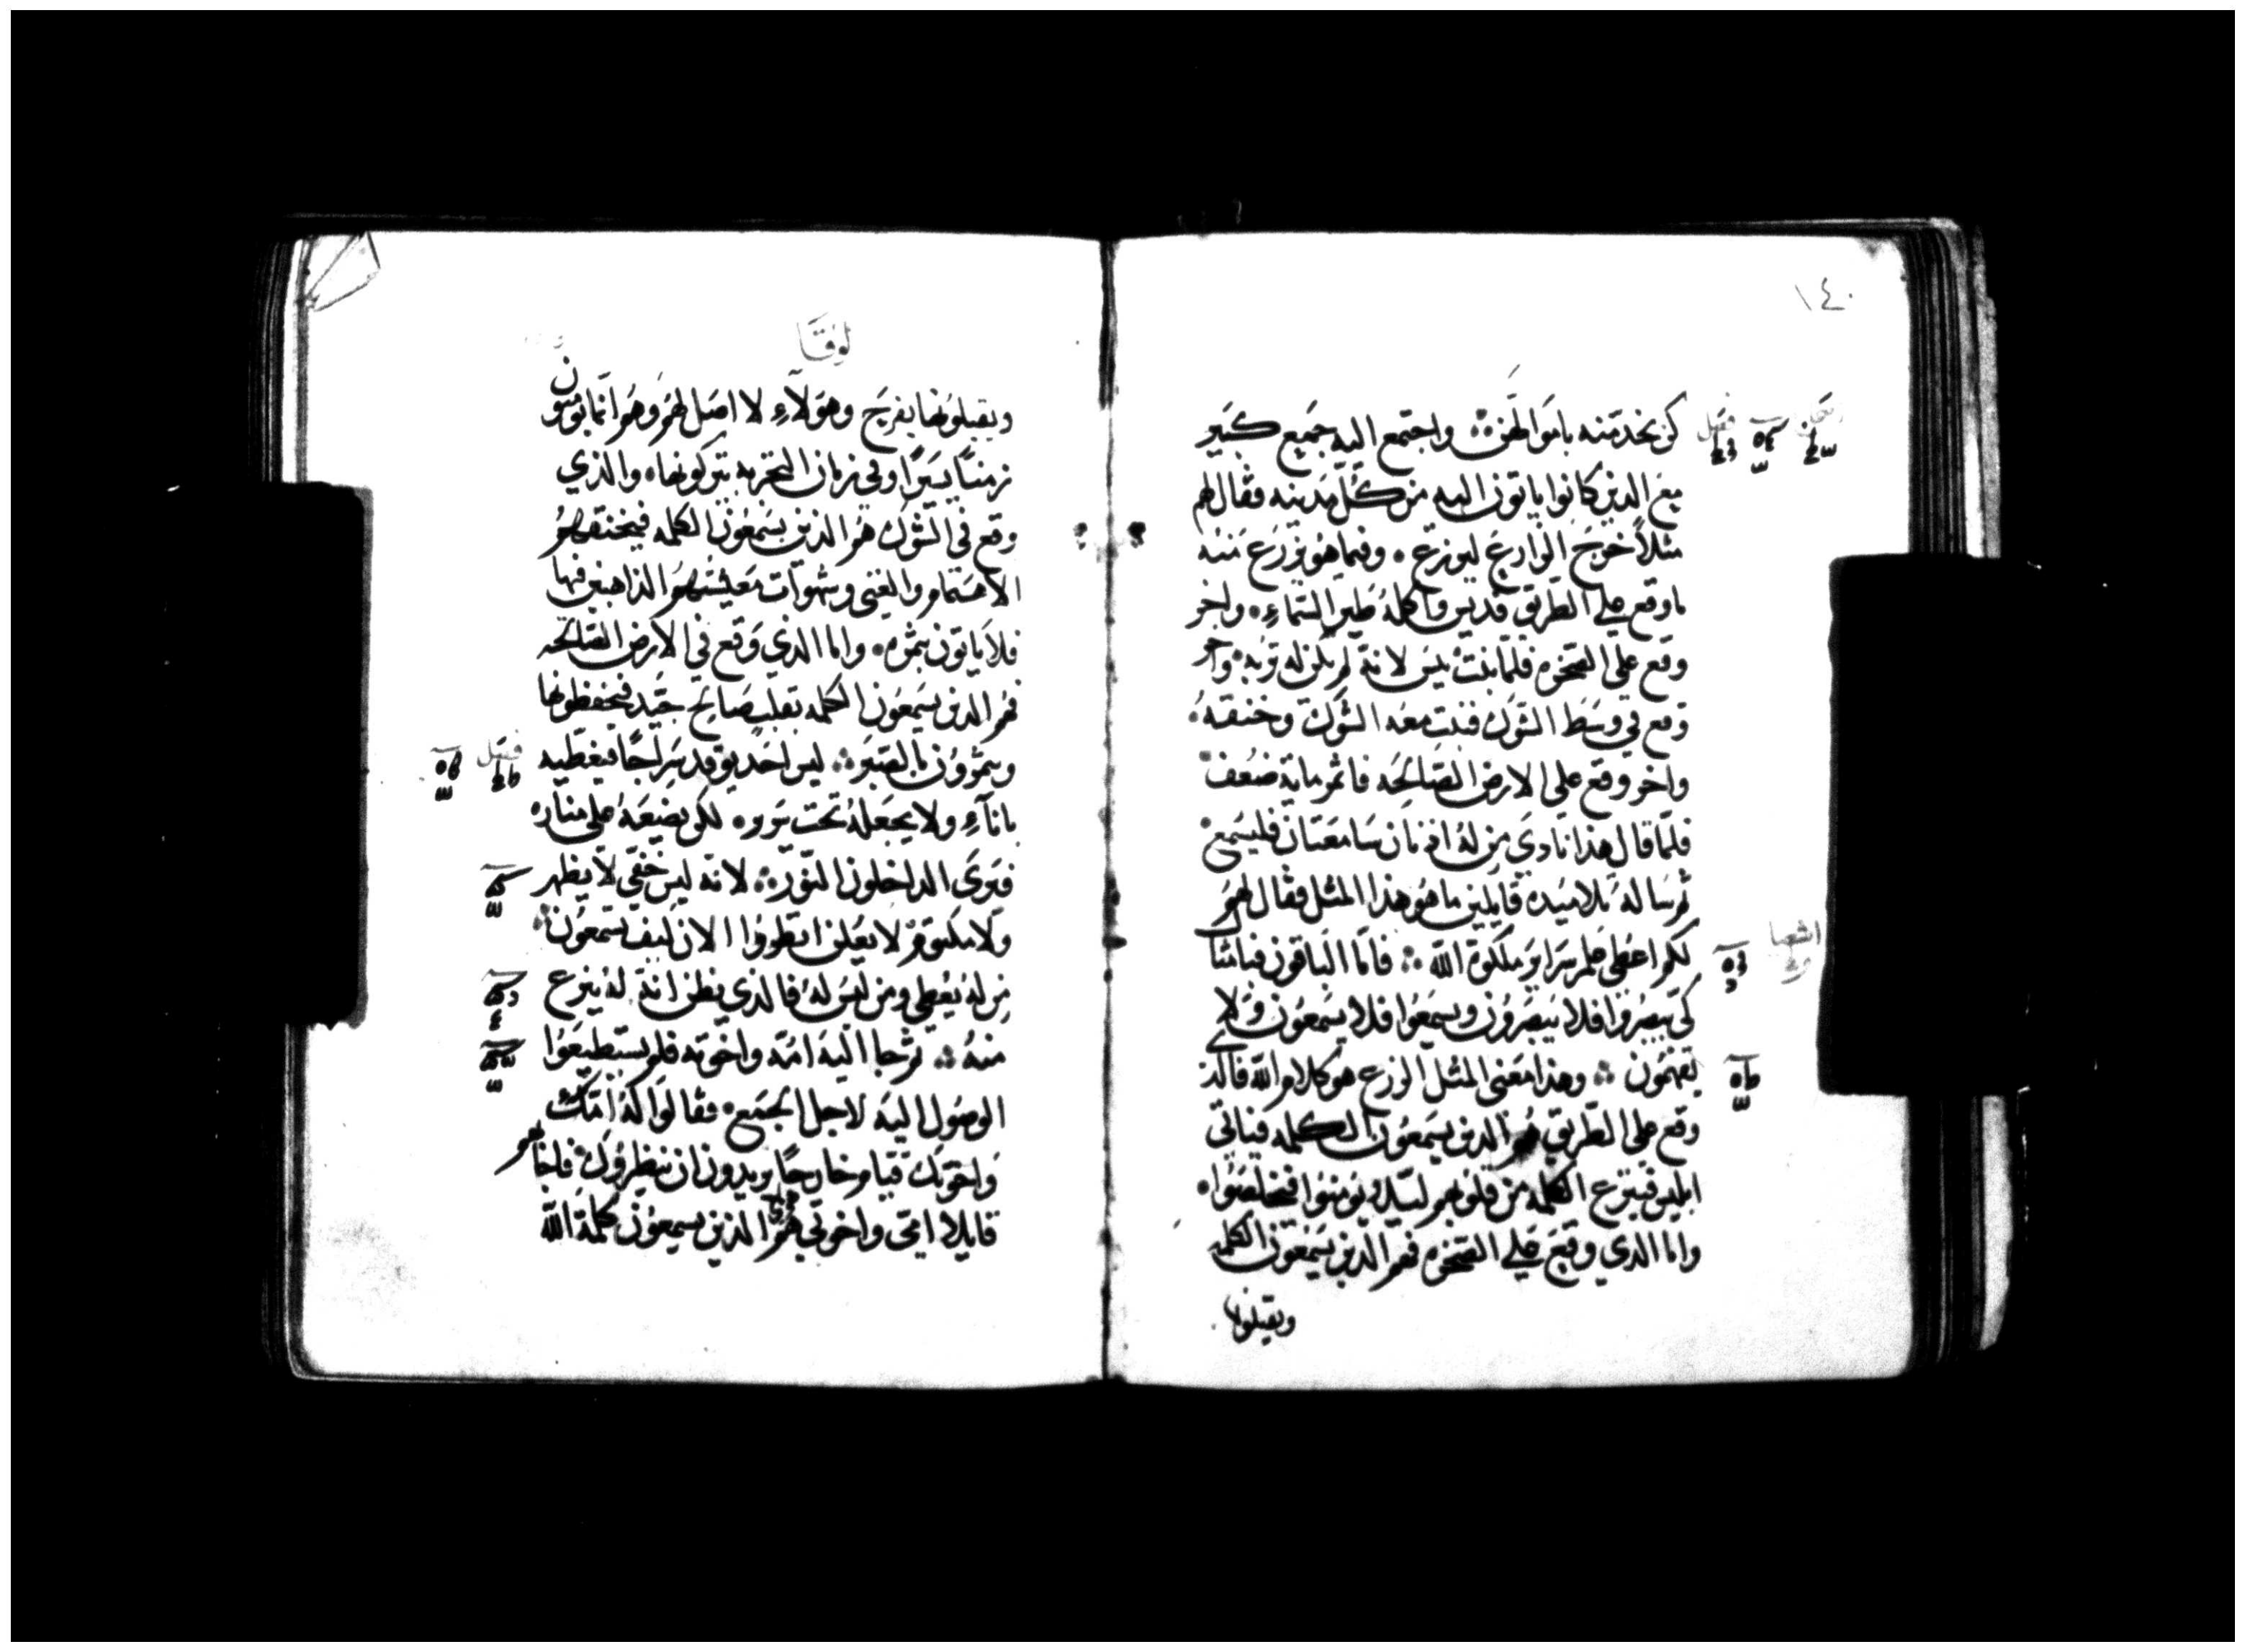 ١٤٠
كن يخدمنه باموالهن ܀ واجتمع اليه جميع كبير
مع الدين كانوا ياتون اليه من كل مدينه فقال لهم
مثلاً خرج الزارع ليزرع ٠ وفيما هو يزرع منه
ما وقع علي الطريق فديس واكله طير السماء ٠ واخر
وقع على الصخره فلما نبت يبس لانه لم يكن له تربه ٠ واخر
وقع في وسط الشوك فنبت معه الشوك وخنقه ٠
واخر وقع علي الارض الصالحه فاثمر مايه ضعف
فلما قال هذا نادي من له اذنان سامعتان فليسمع
ثم ساله تلاميده قايلين ما هو هذا المثل فقال لهم
لكم اعطي علم سراير ملكوة الله ܀ فاما الباقون فبامثال
كي يبصروا فلا يبصرون ويسمعوا فلا يسمعون ولا
يفهمون ܀ وهذا معني المثل الزرع هو كلام الله فالذي
وقع على الطريق هم الدين يسمعون الكلمه فياتي
ابليس فينزع الكلمه من قلوبهم ليلا يومنوا فيخلصوا ٠
واما الدي وقع علي الصخره فهم الدين يسمعون الكلمه
ويقبلونها
فصل
اشعيا
لوقا
ويقبلونها بفرح وهولآء لا اصل لهم وهم انما يومنون
زمناً يسيراً وفي زمان التجربه يتركونها ٠ والذي
وقع في الشوك هم الذين يسمعون الكلمه فيخنقهم
الاهتمام والغني وشهوات معيشتهم الذاهبين فيها
فلا ياتون بثمره ٠ واما الذي وقع في الارض الصالحه
فهم الدين يسمعون الكلمه بقلب صالح جيد فيحفظونها
ويثمرون بالصبر ܀ ليس احد يوقد سراجاً فيغطيه
باناء ولا يجعله تحت سرير ٠ لكن يضعه على مناره
فيرى الداخلون النور ܀ لانه ليس خفي لا يظهر
ولا مكتوم لا يعلن انظروا الان كيف تسمعون ܀
من له يعطي ومن ليس له فالذي يظن انه له ينزع
منه ܀ ثم جا اليه امه واخوته فلم يستطيعوا
الوصول اليه لاجل الجمع ٠ فقالوا له امك
واخوتك قيام خارجاً يريدون ان ينظروك ٠ فاجابهم
قايلا امي واخوتي هم الذين يسمعون كلمة الله
فصل